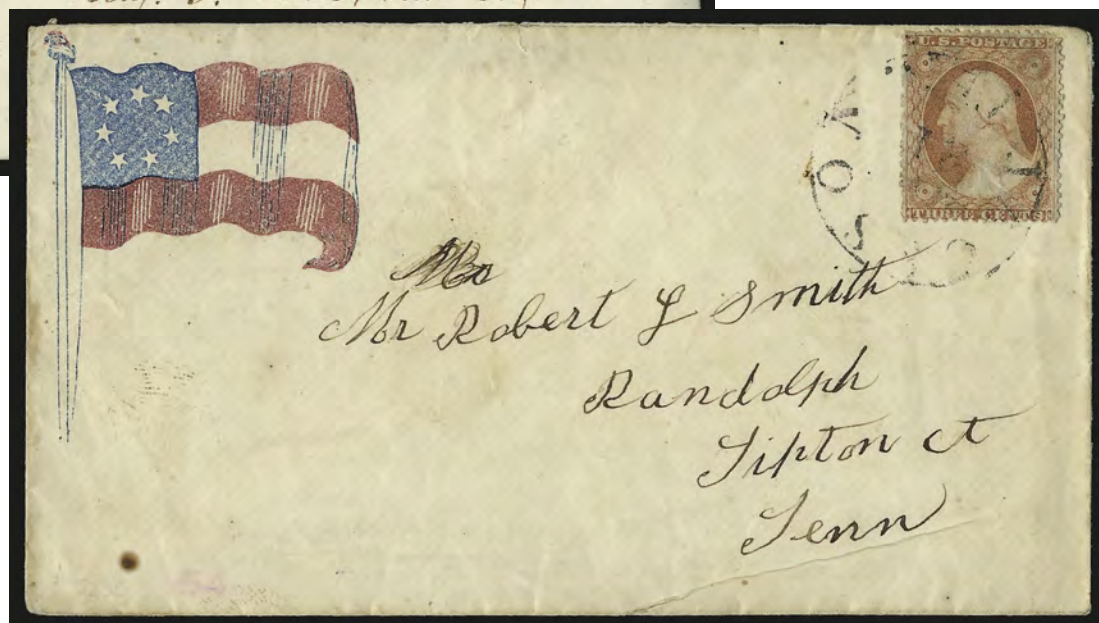 U.S. POSTAGE
THREE CENTS
Mr
Mr Robert L Smith
Randolph
Tipton ct
Tenn